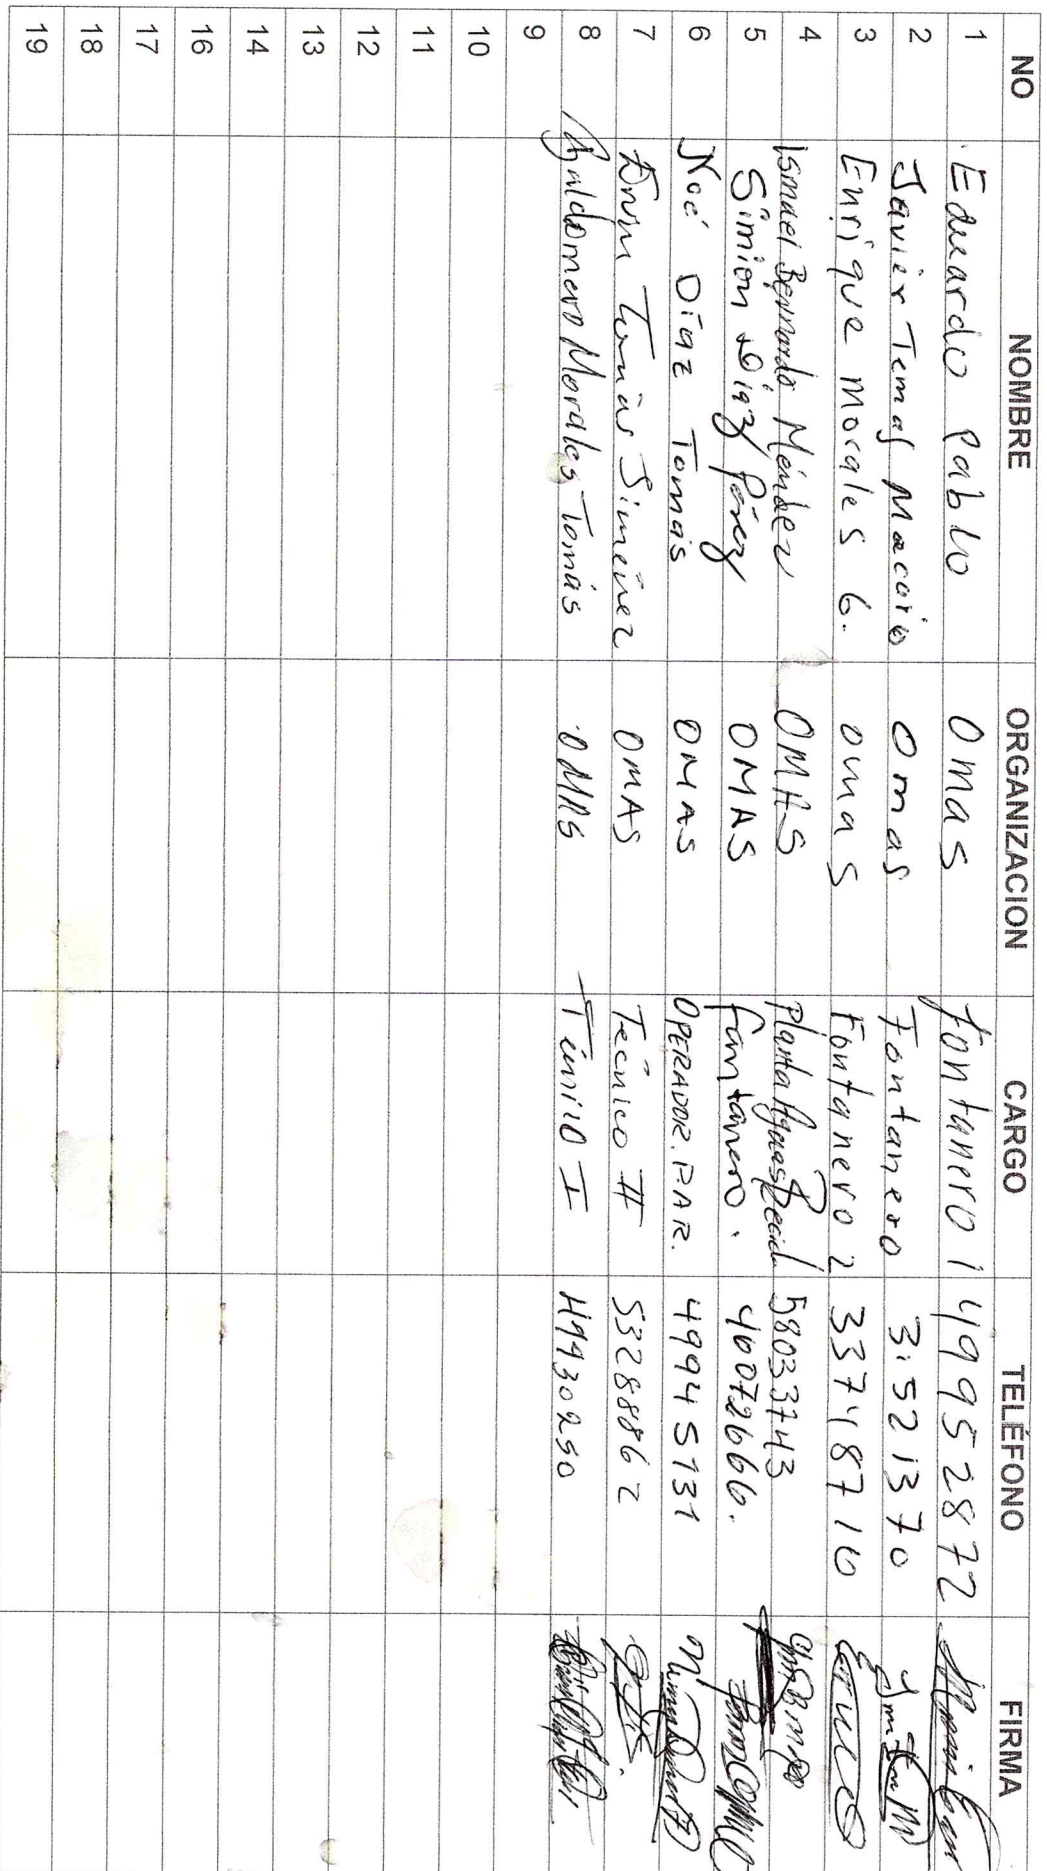 NO NOMBRE ORGANIZACION CARGO TELÉFONO FIRMA
1 Eduardo Pablo Omas fontanero 1 49952872
2 Javier Temaj Macario Omas Fontanero 31521370
3 Enrique Morales G. omas Fontanero 2 33748710
4 Ismael Bernardo Méndez OMAS Planta Aguas 58033743
5 Simion Diaz Pérez OMAS fontanero. 40072666.
6 Noé Díaz Tomás OMAS OPERADOR. P.A.R. 49945131
7 Tomás Jiménez OMAS Técnico II 53288862
8 Baldomero Morales Tomás OMAS I
9
10
11
12
13
14
16
17
18
19